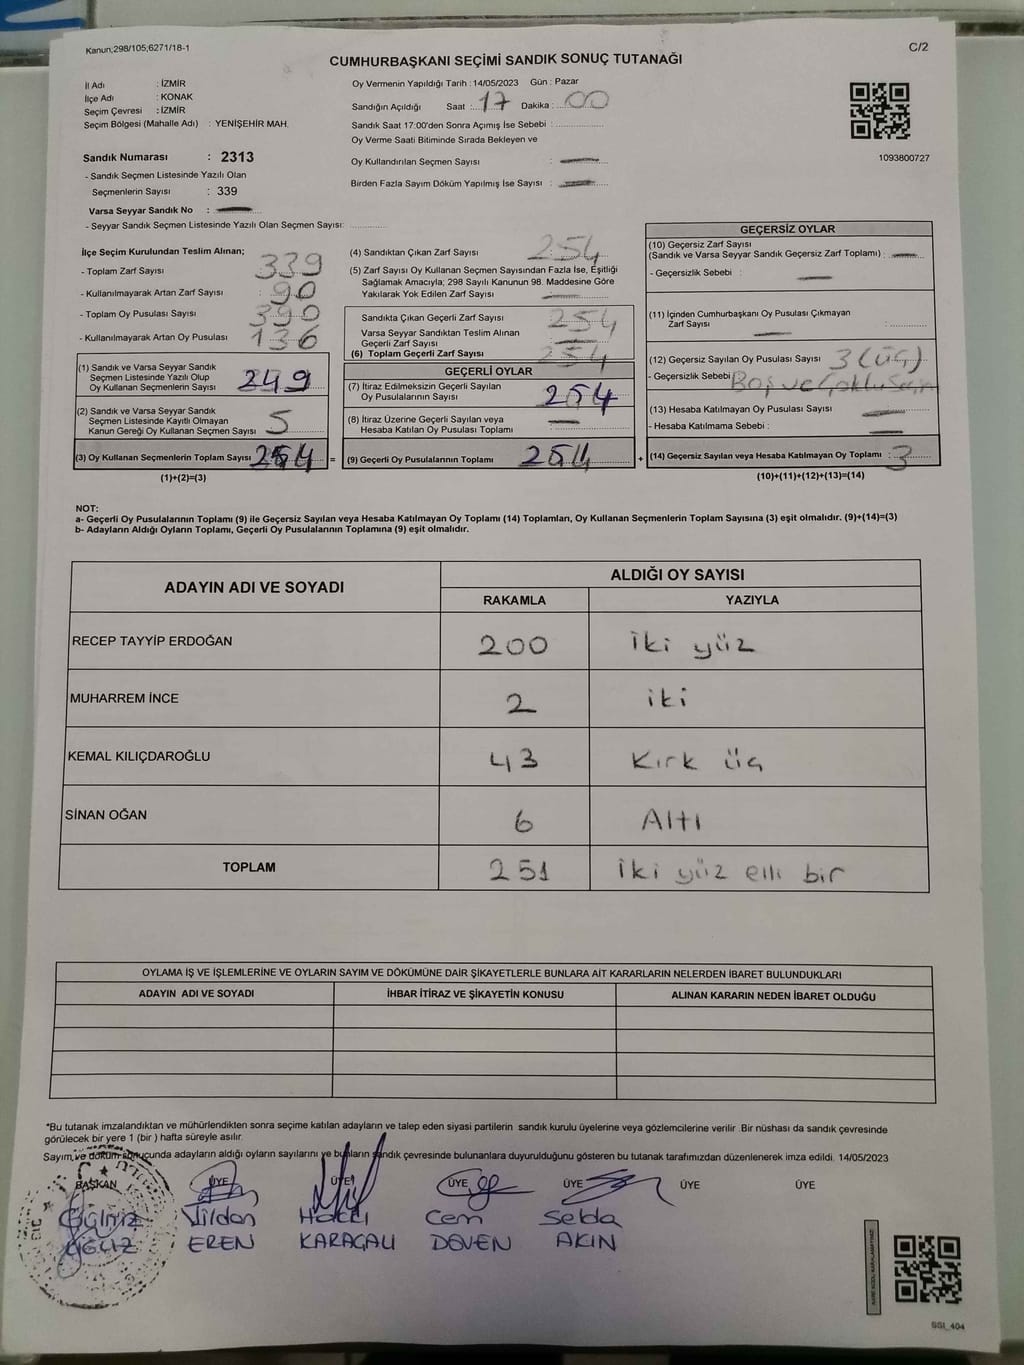 Kanun;298/105;6271/18-1
C/2
CUMHURBAŞKANI SEÇİMİ SANDIK SONUÇ TUTANAĞI
İl Adı : İZMİR
İlçe Adı : KONAK
Seçim Çevresi : İZMİR
Seçim Bölgesi (Mahalle Adı) : YENİŞEHİR MAH.
Oy Vermenin Yapıldığı Tarih : 14/05/2023 Gün : Pazar
Sandığın Açıldığı Saat : 17 Dakika : 00
Sandık Saat 17:00'den Sonra Açımış İse Sebebi :
Oy Verme Saati Bitiminde Sırada Bekleyen ve
Oy Kullandırılan Seçmen Sayısı :
Birden Fazla Sayım Döküm Yapılmış İse Sayısı :
1093800727
Sandık Numarası : 2313
- Sandık Seçmen Listesinde Yazılı Olan
Seçmenlerin Sayısı : 339
Varsa Seyyar Sandık No :
- Seyyar Sandık Seçmen Listesinde Yazılı Olan Seçmen Sayısı:
İlçe Seçim Kurulundan Teslim Alınan;
- Toplam Zarf Sayısı : 339
- Kullanılmayarak Artan Zarf Sayısı : 90
- Toplam Oy Pusulası Sayısı : 390
- Kullanılmayarak Artan Oy Pusulası : 136
(1) Sandık ve Varsa Seyyar Sandık
Seçmen Listesinde Yazılı Olup
Oy Kullanan Seçmenlerin Sayısı 249
(2) Sandık ve Varsa Seyyar Sandık
Seçmen Listesinde Kayıtlı Olmayan
Kanun Gereği Oy Kullanan Seçmen Sayısı 5
(3) Oy Kullanan Seçmenlerin Toplam Sayısı 254 =
(1)+(2)=(3)
(4) Sandıktan Çıkan Zarf Sayısı : 254
(5) Zarf Sayısı Oy Kullanan Seçmen Sayısından Fazla İse, Eşitliği
Sağlamak Amacıyla; 298 Sayılı Kanunun 98. Maddesine Göre
Yakılarak Yok Edilen Zarf Sayısı :
Sandıkta Çıkan Geçerli Zarf Sayısı 254
Varsa Seyyar Sandıktan Teslim Alınan
Geçerli Zarf Sayısı
(6) Toplam Geçerli Zarf Sayısı 254
GEÇERLİ OYLAR
(7) İtiraz Edilmeksizin Geçerli Sayılan
Oy Pusulasının Sayısı 254
(8) İtiraz Üzerine Geçerli Sayılan veya
Hesaba Katılan Oy Pusulası Toplamı
(9) Geçerli Oy Pusulalarının Toplamı 254 +
GEÇERSİZ OYLAR
(10) Geçersiz Zarf Sayısı
(Sandık ve Varsa Seyyar Sandık Geçersiz Zarf Toplamı) :
- Geçersizlik Sebebi :
(11) İçinden Cumhurbaşkanı Oy Pusulası Çıkmayan
Zarf Sayısı :
(12) Geçersiz Sayılan Oy Pusulası Sayısı 3 (üç)
- Geçersizlik Sebebi Boş ve
(13) Hesaba Katılmayan Oy Pusulası Sayısı
- Hesaba Katılmama Sebebi :
(14) Geçersiz Sayılan veya Hesaba Katılmayan Oy Toplamı : 3
(10)+(11)+(12)+(13)=(14)
NOT:
a- Geçerli Oy Pusulalarının Toplamı (9) ile Geçersiz Sayılan veya Hesaba Katılmayan Oy Toplamı (14) Toplamları, Oy Kullanan Seçmenlerin Toplam Sayısına (3) eşit olmalıdır. (9)+(14)=(3)
b- Adayların Aldığı Oyların Toplamı, Geçerli Oy Pusulalarının Toplamına (9) eşit olmalıdır.
ADAYIN ADI VE SOYADI
ALDIĞI OY SAYISI
RAKAMLA YAZIYLA
RECEP TAYYİP ERDOĞAN 200 iki yüz
MUHARREM İNCE 2 iki
KEMAL KILIÇDAROĞLU 43 Kırk üç
SİNAN OĞAN 6 Altı
TOPLAM 251 iki yüz elli bir
OYLAMA İŞ VE İŞLEMLERİNE VE OYLARIN SAYIM VE DÖKÜMÜNE DAİR ŞİKAYETLERLE BUNLARA AİT KARARLARIN NELERDEN İBARET BULUNDUKLARI
ADAYIN ADI VE SOYADI İHBAR İTİRAZ VE ŞİKAYETİN KONUSU ALINAN KARARIN NEDEN İBARET OLDUĞU
*Bu tutanak imzalandıktan ve mühürlendikten sonra seçime katılan adayların ve talep eden siyasi partilerin sandık kurulu üyelerine veya gözlemcilerine verilir .Bir nüshası da sandık çevresinde
görülecek bir yere 1 (bir ) hafta süreyle asılır.
Sayım ve döküm sonucunda adayların aldığı oyların sayılarını ve bunların sandık çevresinde bulunanlara duyurulduğunu gösteren bu tutanak tarafımızdan düzenlenerek imza edildi. 14/05/2023
BAŞKAN ÜYE ÜYE ÜYE ÜYE ÜYE ÜYE
Vildan Hakkı Cem Selda
EREN KARAÇALI DÖVEN AKIN
SSI_404